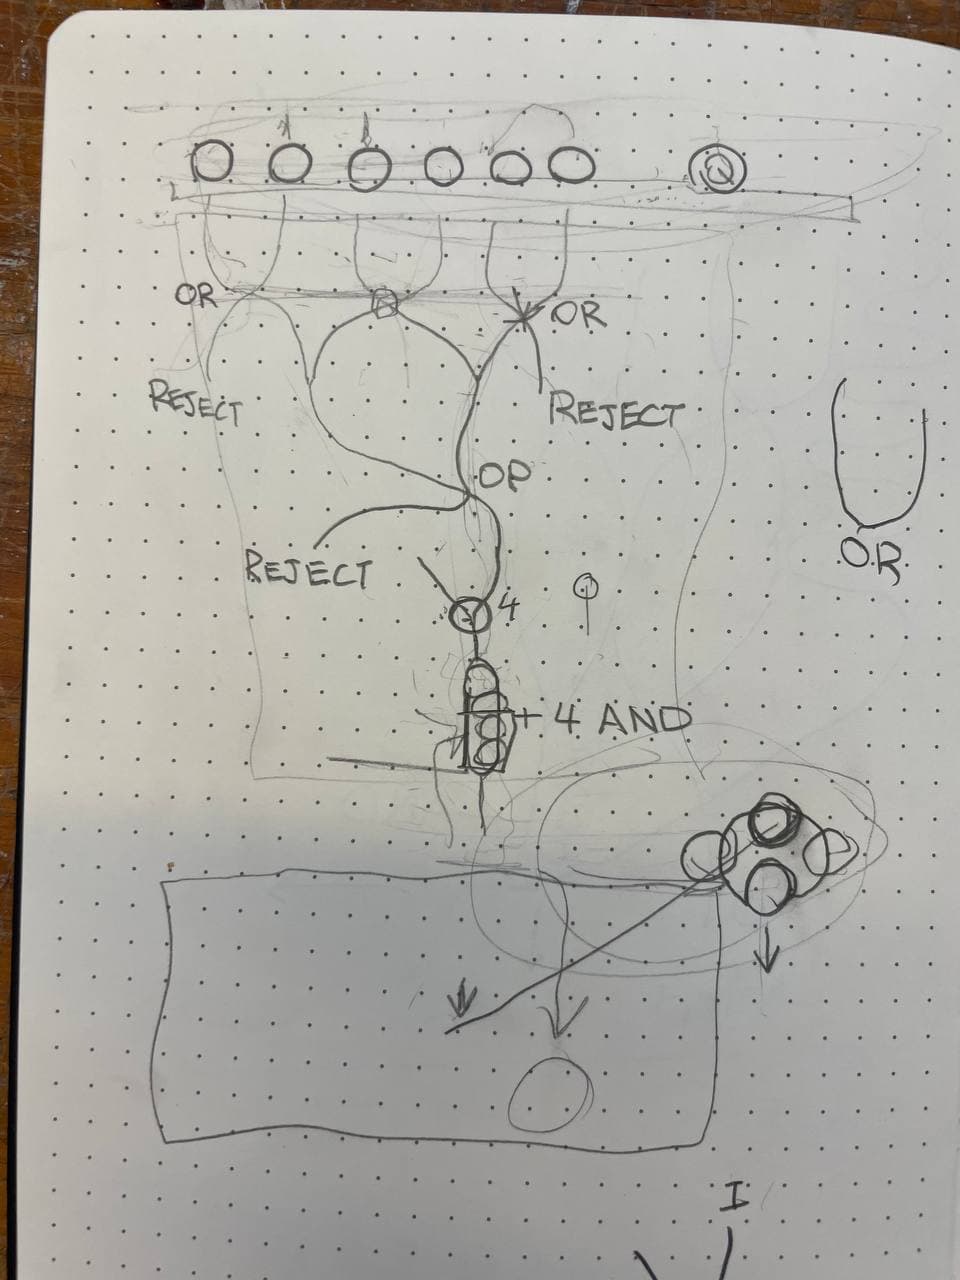 OR
OR
REJECT
REJECT
OR
OR
REJECT
4
+ 4 AND
I